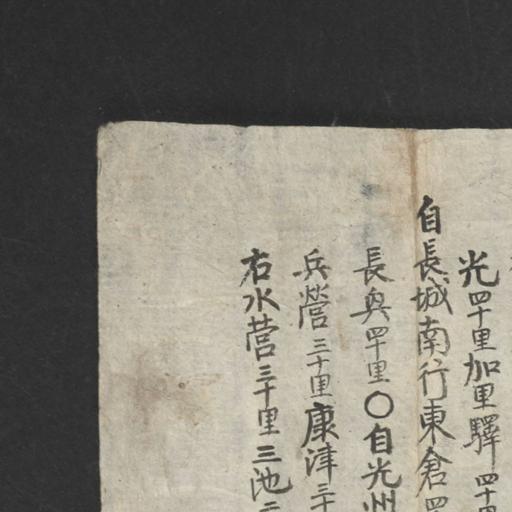 光四十里加里驛四十里
自長城南行東倉四
長興四十里〇自光州
兵營三十里康津三十
右水营三十里三池二